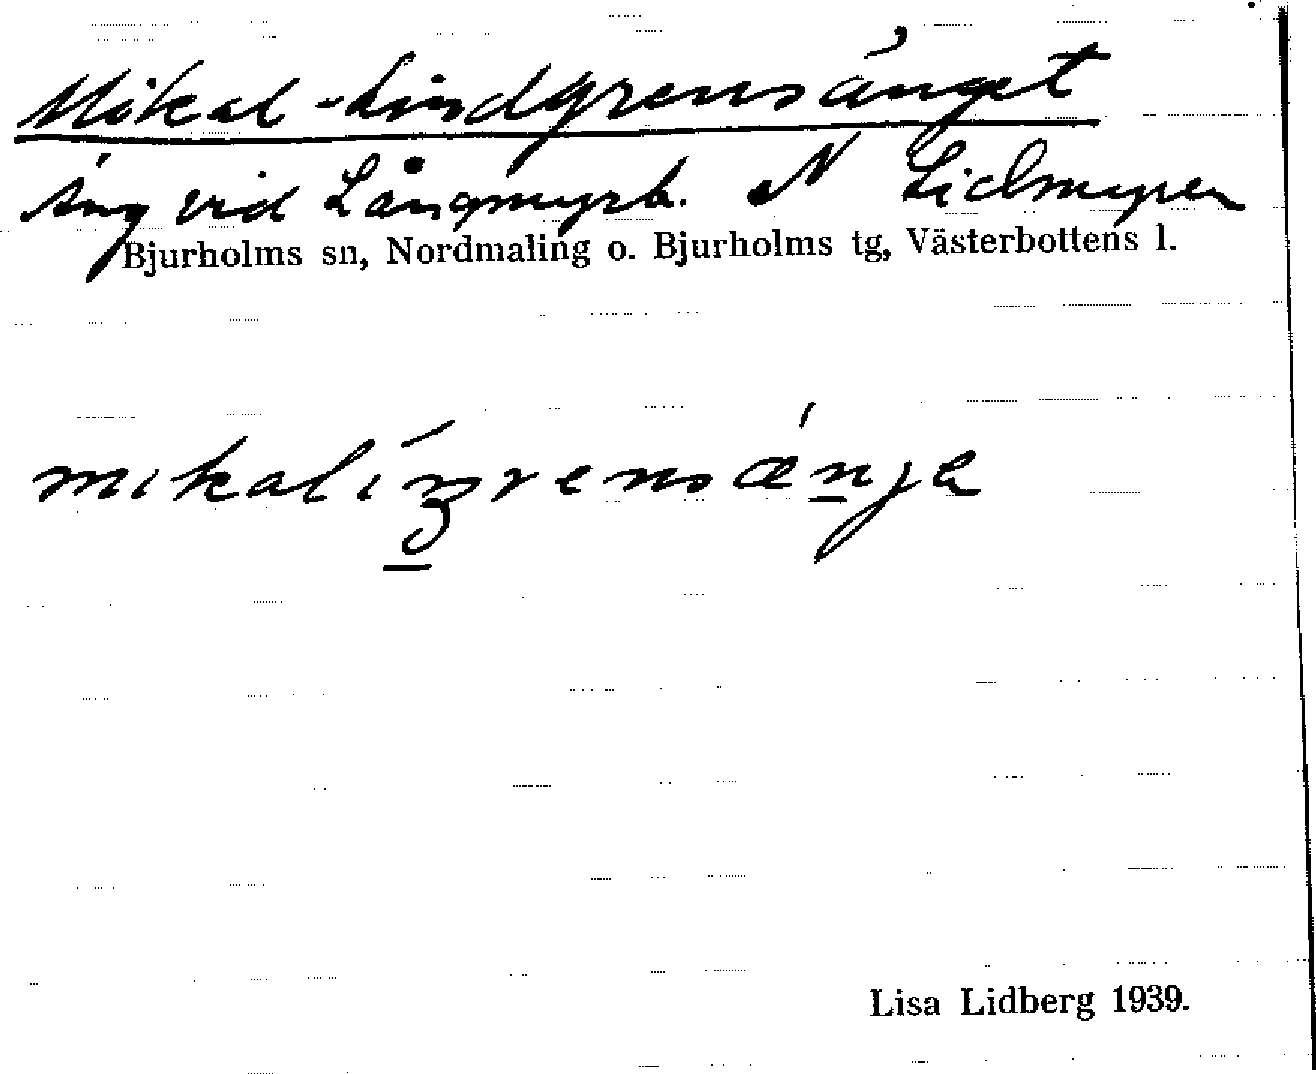 Mikal-Lindgrensänget
Äng vid Långmyrb. N Lidmyren
Bjurholms sn, Nordmaling o. Bjurholms tg, Västerbottens l.
Lisa Lidberg 1939.